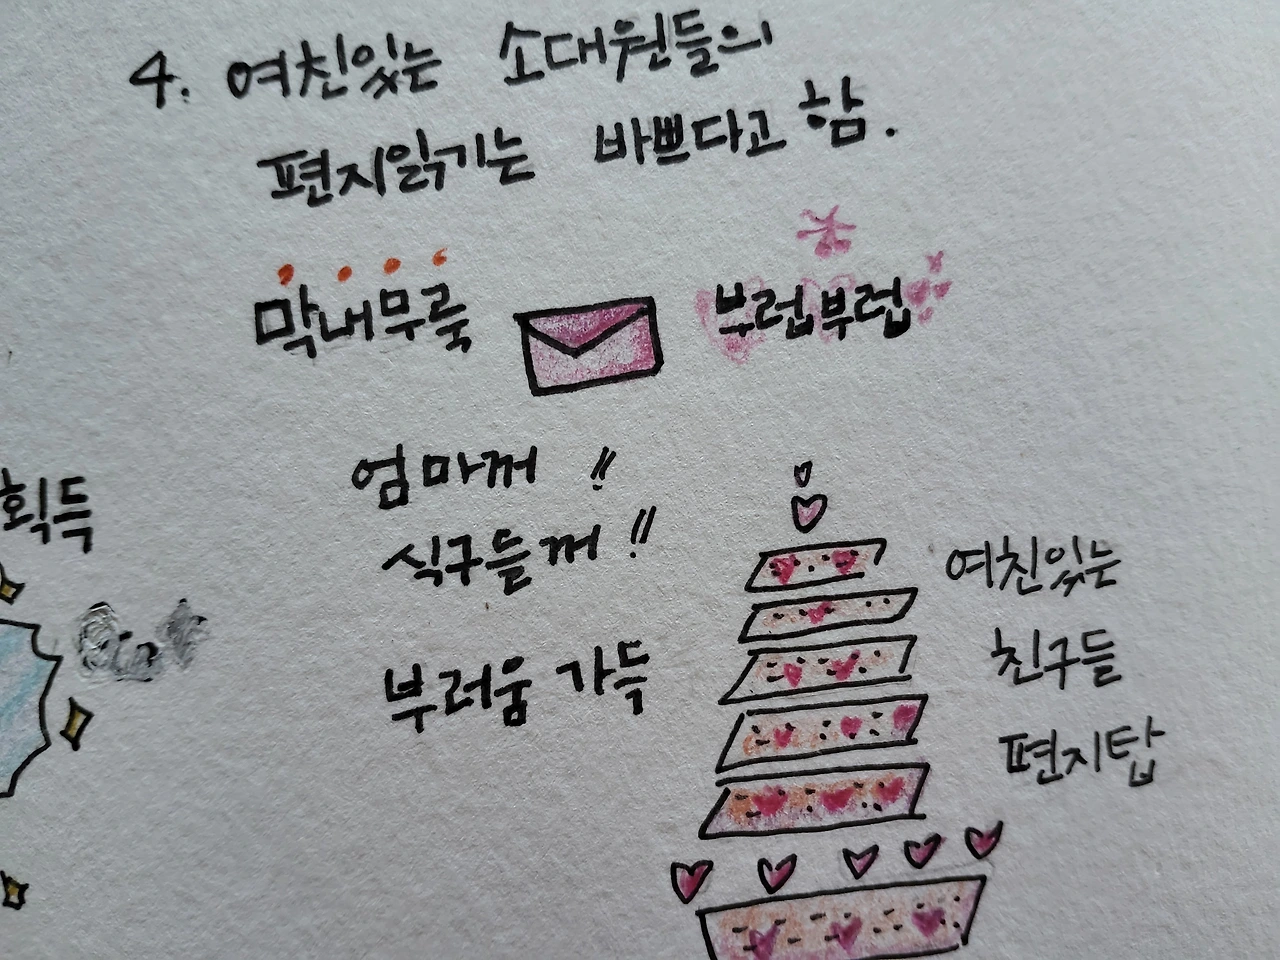 4. 여친있는 소대원들의
편지읽기는 바쁘다고 함.
막내무룩
부럽부럽
엄마꺼 !!
식구들꺼 !!
부러움 가득
여친있는
친구들
편지탑
획득